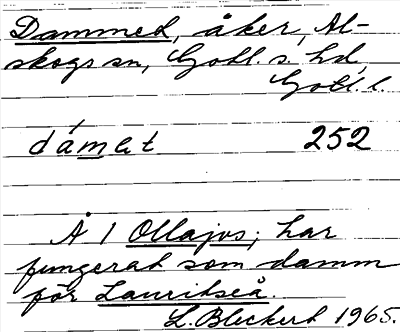 Dammed, åker, Al-
skogs sn, Gotl. s. hd,
Gotl. l.
dámat 252
Å 1 Ollajvs; har
fungerat som damm
för Lauritseå.
L. Bleckert 1965.